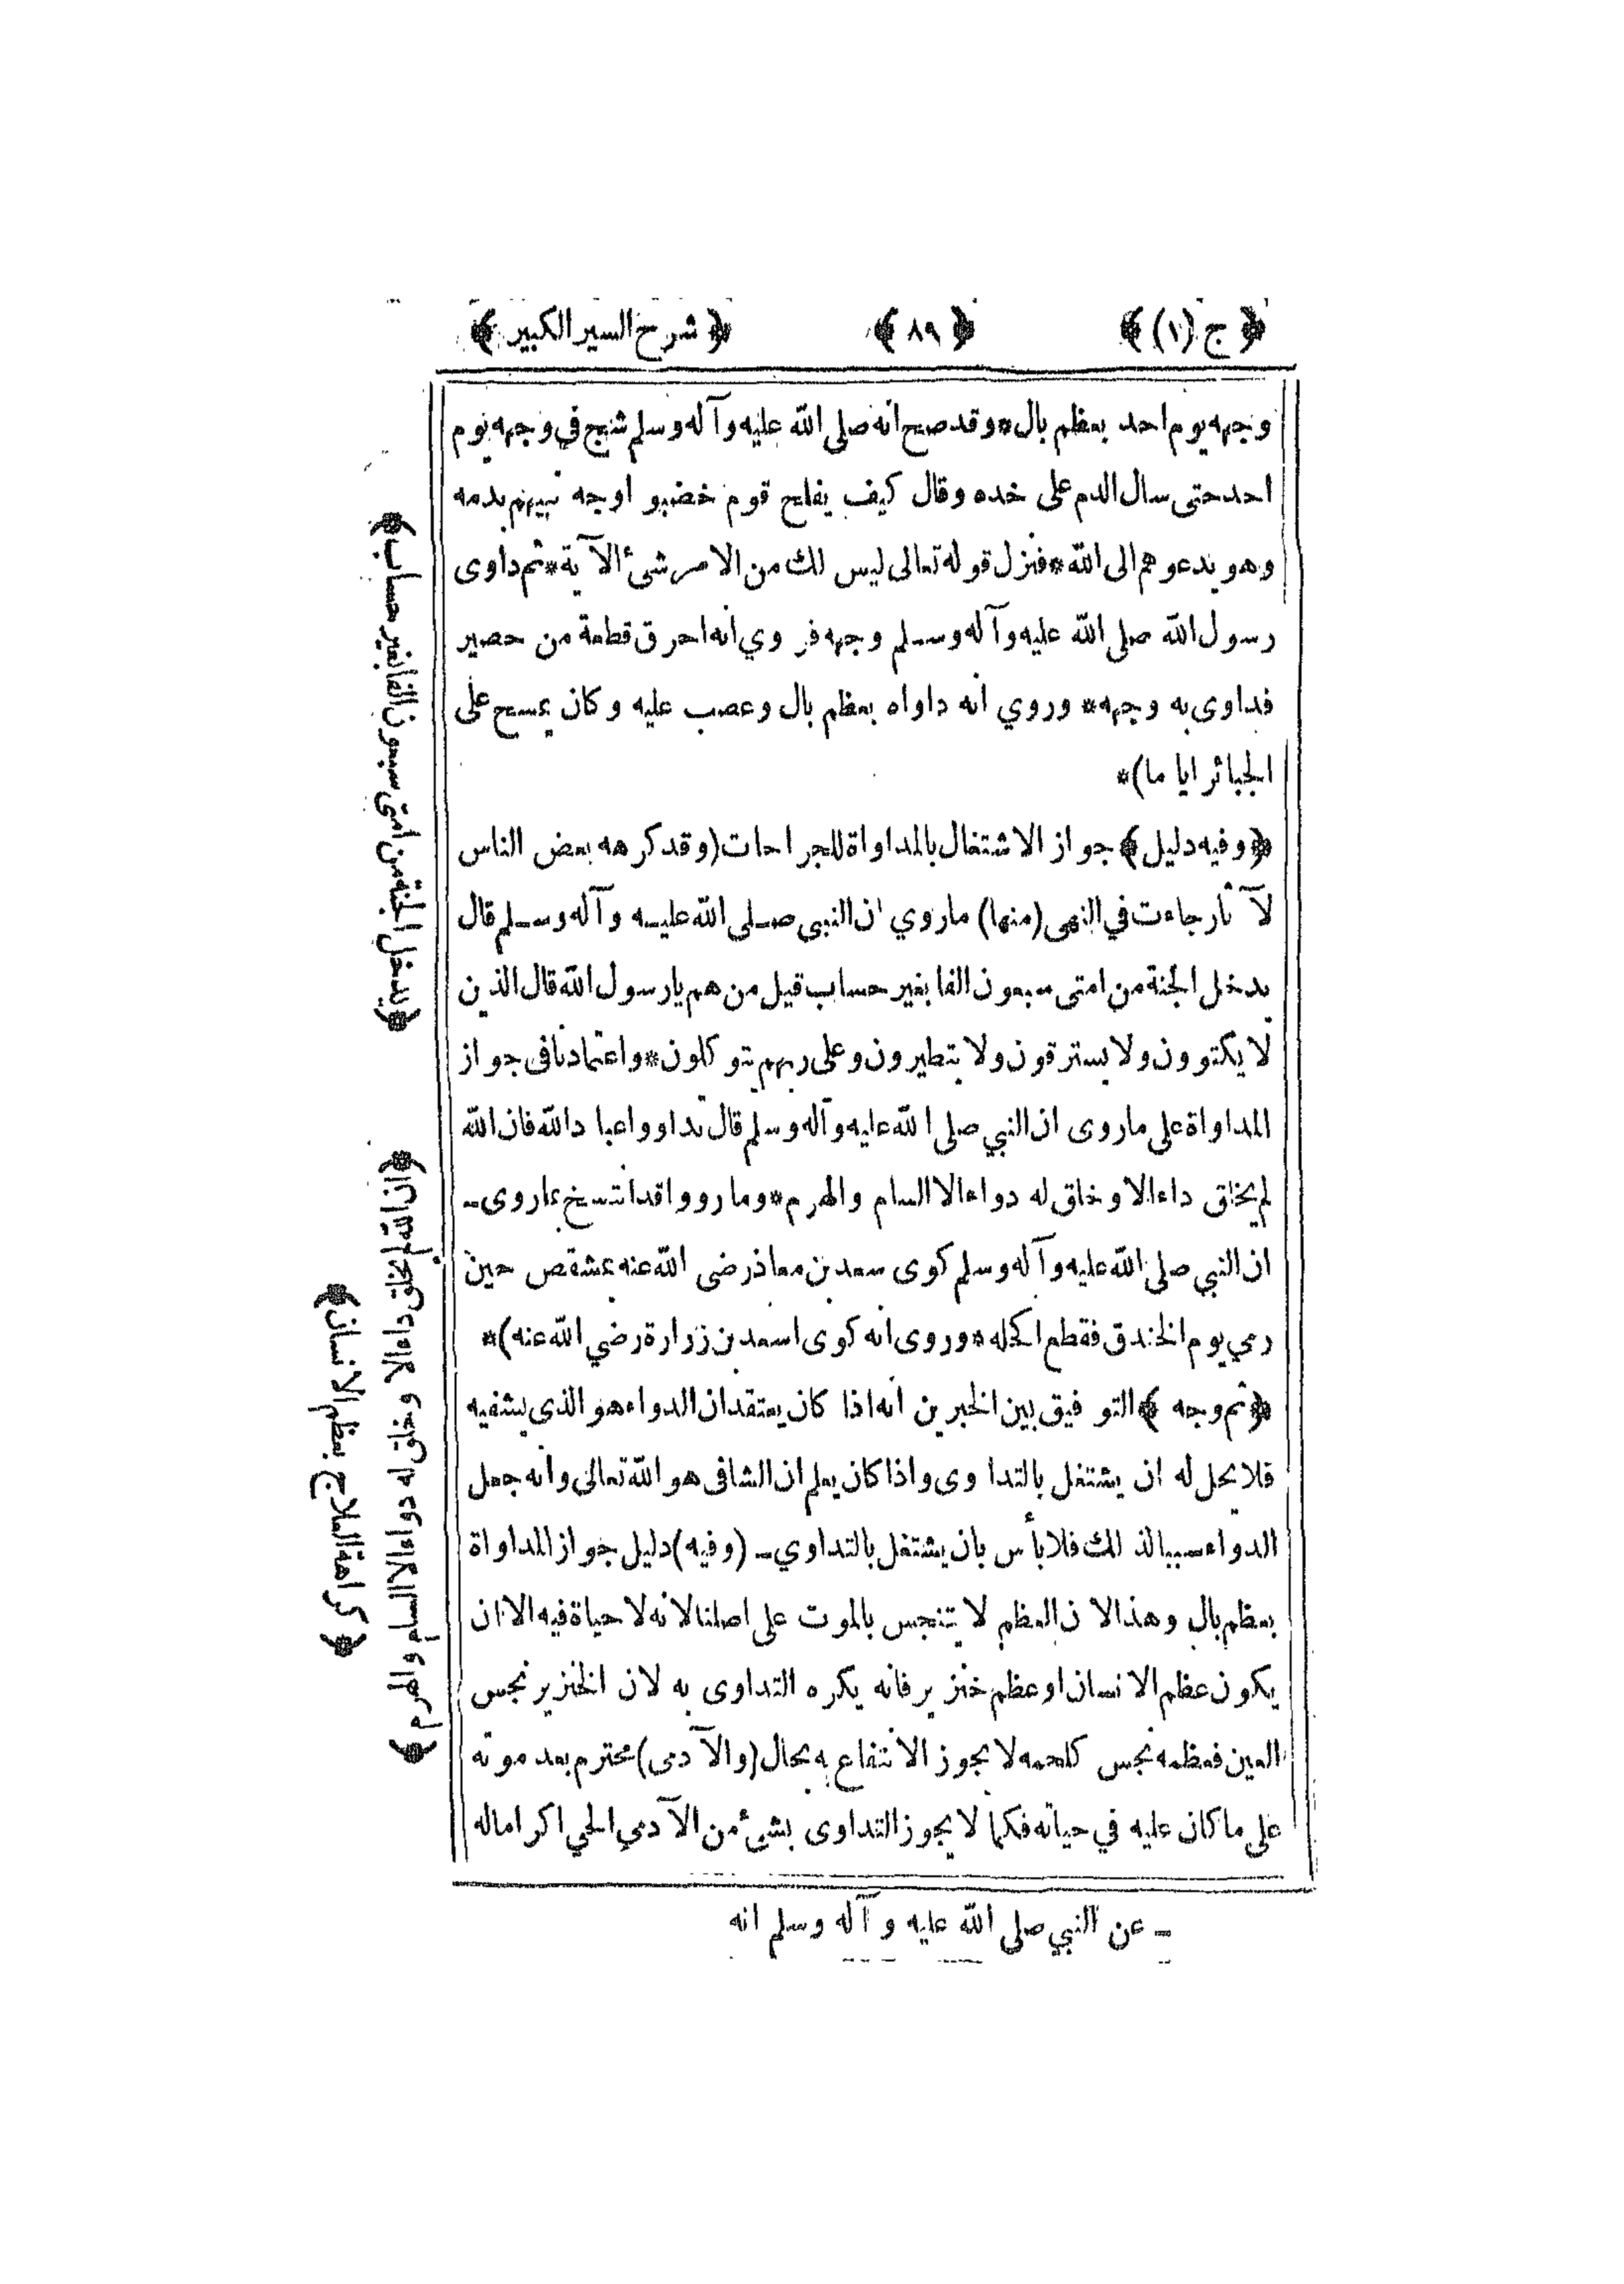 ﴿ج (١)﴾ ﴿٨٩﴾ ﴿شرح السير الكبير﴾
وجهه يوم احد بعظم بال * وقد صح انه صلى الله عليه وآله وسلم شج في وجهه يوم
احد حتى سال الدم على خده وقال كيف يفلح قوم خضبوا وجه نبيهم بدمه
وهو يدعوهم الى الله * فنزل قوله تعالى ليس لك من الامر شئ الآية * ثم داوى
رسول الله صلى الله عليه وآله وسلم وجهه فروي انه احرق قطعة من حصير
فداوى به وجهه * وروي انه داواه بعظم بال وعصب عليه وكان يمسح على
الجبائر اياما) *
﴿وفيه دليل﴾ جواز الاشتغال بالمداواة للجراحات (وقد كرهه بعض الناس
لآثار جاءت في النهى (منها) ماروي ان النبى صلى الله عليه وآله وسلم قال
يدخل الجنة من امتى سبعون الفا بغير حساب قيل من هم يارسول الله قال الذين
لا يكتوون ولا يسترقون ولا يتطيرون وعلى ربهم يتوكلون * واعتمادنا فى جواز
المداواة على ماروى ان النبي صلى الله عليه وآله وسلم قال تداووا عباد الله فان الله
لم يخلق داء الا وخلق له دواء الا السام والهرم * وما رووا قد انتسخ بماروى ـ
ان النبي صلى الله عليه وآله وسلم كوى سعد بن معاذ رضى الله عنه بمشقص حين
رمي يوم الخندق فقطع اكحله * وروى انه كوى اسعد بن زرارة رضي الله عنه) *
﴿ثم وجه﴾ التوفيق بين الخبرين انه اذا كان يعتقد ان الدواء هو الذى يشفيه
فلا يحل له ان يشتغل بالتداوى واذا كان يعلم ان الشافى هو الله تعالى وانه جعل
الدواء سببا لذلك فلا بأس بان يشتغل بالتداوي ـ (وفيه) دليل جواز المداواة
بعظم بال وهذا لان العظم لا يتنجس بالموت على اصلنا لانه لا حياة فيه الا ان
يكون عظم الانسان او عظم خنزير فانه يكره التداوى به لان الخنزير نجس
العين فعظمه نجس كلحمه لا يجوز الانتفاع به بحال (والآدمى) محترم بعد موته
على ما كان عليه في حياته فكما لا يجوز التداوى بشئ من الآدمي الحي اكراما له
ـ عن النبي صلى الله عليه وآله وسلم انه
﴿يدخل الجنة من امتى سبعون الفا بغير حساب﴾
﴿ان الله لم يخلق داء الا وخلق له دواء الا السام والهرم﴾
﴿كراهة العلاج بعظم الانسان﴾